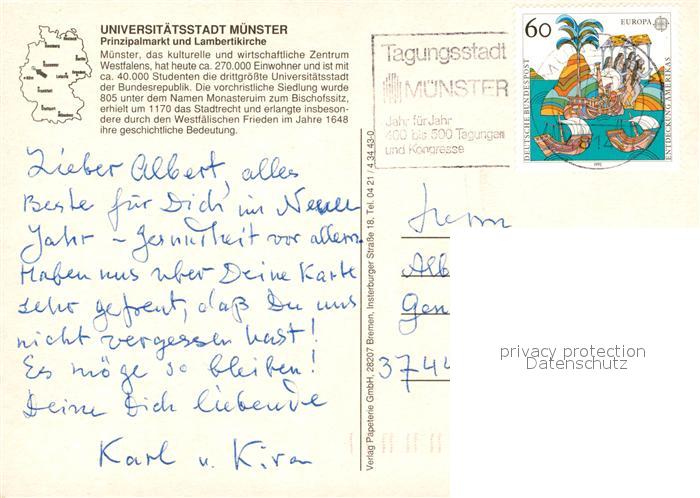 UNIVERSITÄTSSTADT MÜNSTER
Prinzipalmarkt und Lambertikirche
Münster, das kulturelle und wirtschaftliche Zentrum
Westfalens, hat heute ca. 270.000 Einwohner und ist mit
ca. 40.000 Studenten die drittgrößte Universitätsstadt
der Bundesrepublik. Die vorchristliche Siedlung wurde
805 unter dem Namen Monasterium zum Bischofssitz,
erhielt um 1170 das Stadtrecht und erlangte insbeson-
dere durch den Westfälischen Frieden im Jahre 1648
ihre geschichtliche Bedeutung.
Lieber Albert, alles
Beste für Dich im Neuen
Jahr – Gesundheit vor allem.
Haben uns über Deine Karte
sehr gefreut, daß Du uns
nicht vergessen hast!
Es möge so bleiben!
Deine Dich liebende
Karl u. Kira
Verlag Papeterie GmbH, 28207 Bremen, Insterburger Straße 18, Tel. 04 21 / 4 34 43-0
Tagungsstadt
MÜNSTER
Jahr für Jahr
400 bis 500 Tagungen
und Kongresse
60
EUROPA
DEUTSCHE BUNDESPOST
ENTDECKUNG AMERIKAS
1992
Herrn
Alb
Gen
3744
privacy protection
Datenschutz